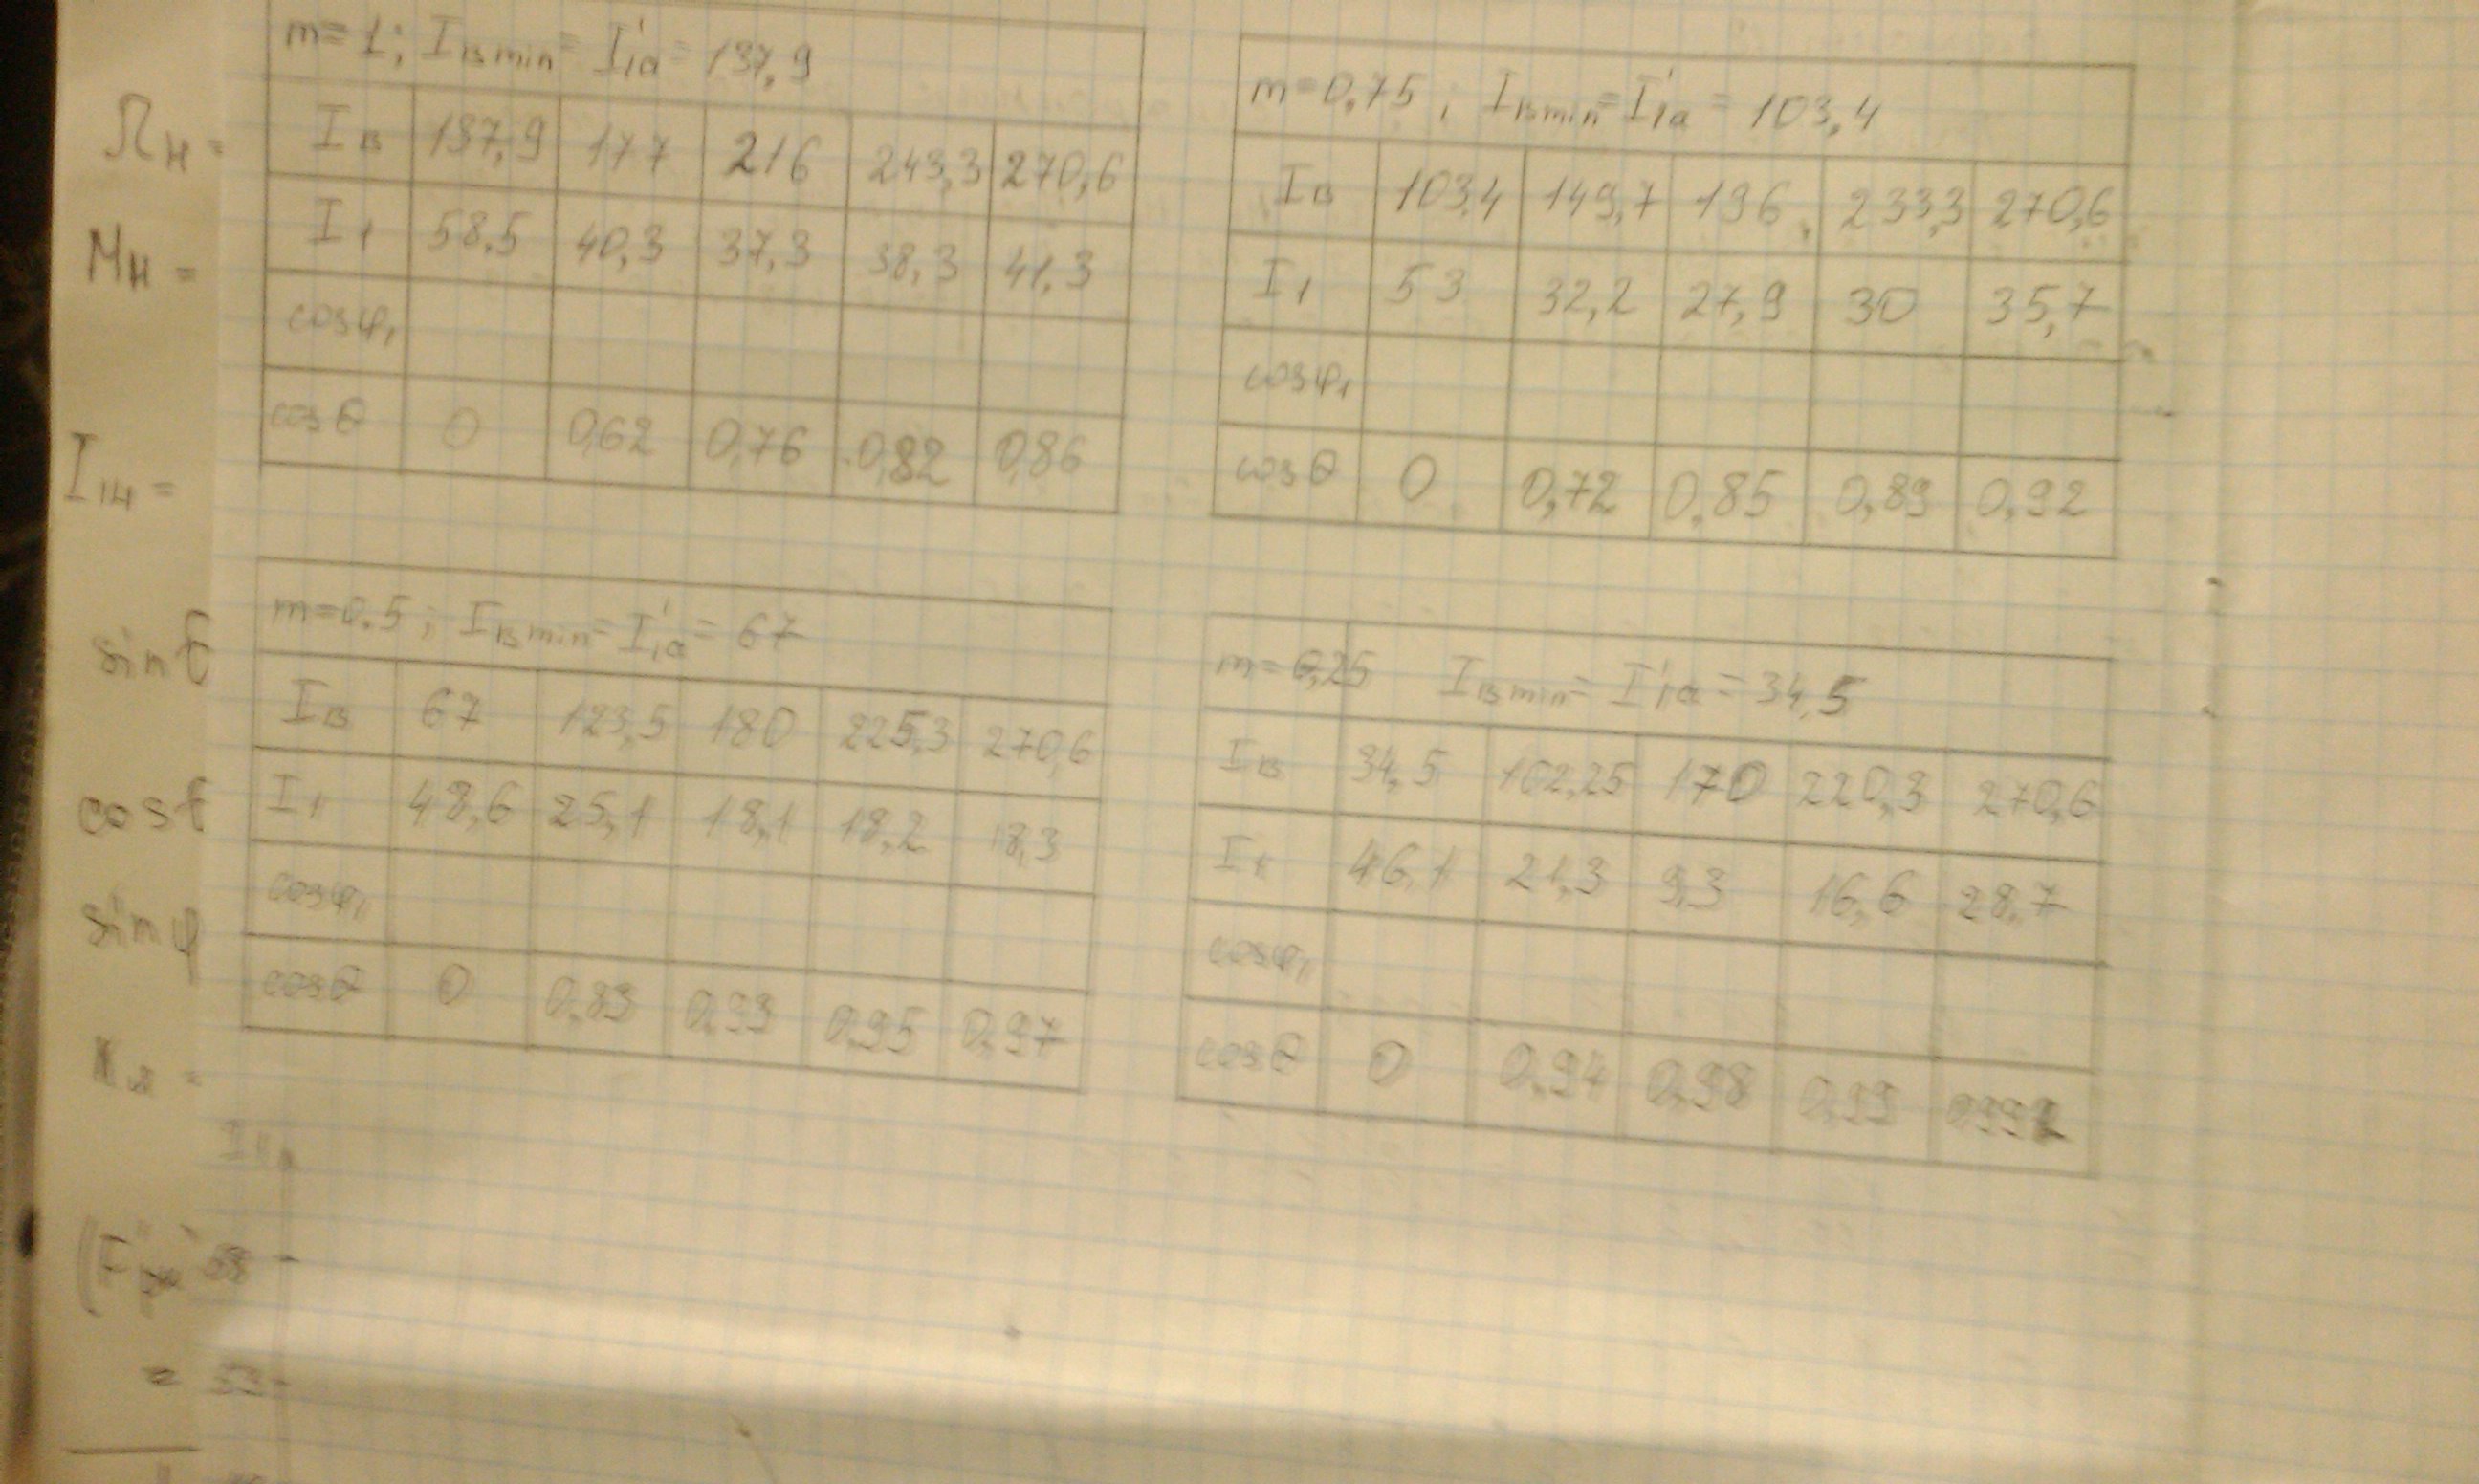 m=1; Iвmin= I'1a= 137,9
Iв 137,9 177 216 243,3 270,6
I1 58.5 40,3 37,3 38,3 41,3
cosφ1
cosθ 0 0,62 0,76 0,82 0,86
m=0,75 ; Iвmin=I'1a = 103,4
Iв 103,4 149,7 196 233,3 270,6
I1 53 32,2 27,9 30 35,7
cosφ1
cosθ 0 0,72 0,85 0,89 0,92
m=0.5 ; Iвmin= I'1a= 67
Iв 67 123,5 180 225,3 270,6
I1 48,6 25,1 18,1 18,2 18,3
cosφ1
cosθ 0 0,83 0,93 0,95 0,97
m=0,25 Iвmin= I'1a=34,5
Iв 34,5 102,25 170 220,3 270,6
I1 46,1 21,3 9,3 16,6 28,7
cosφ1
cosθ 0 0,94 0,98 0,99
Ωн =
Mн =
I1н =
sin
cos
sin φ